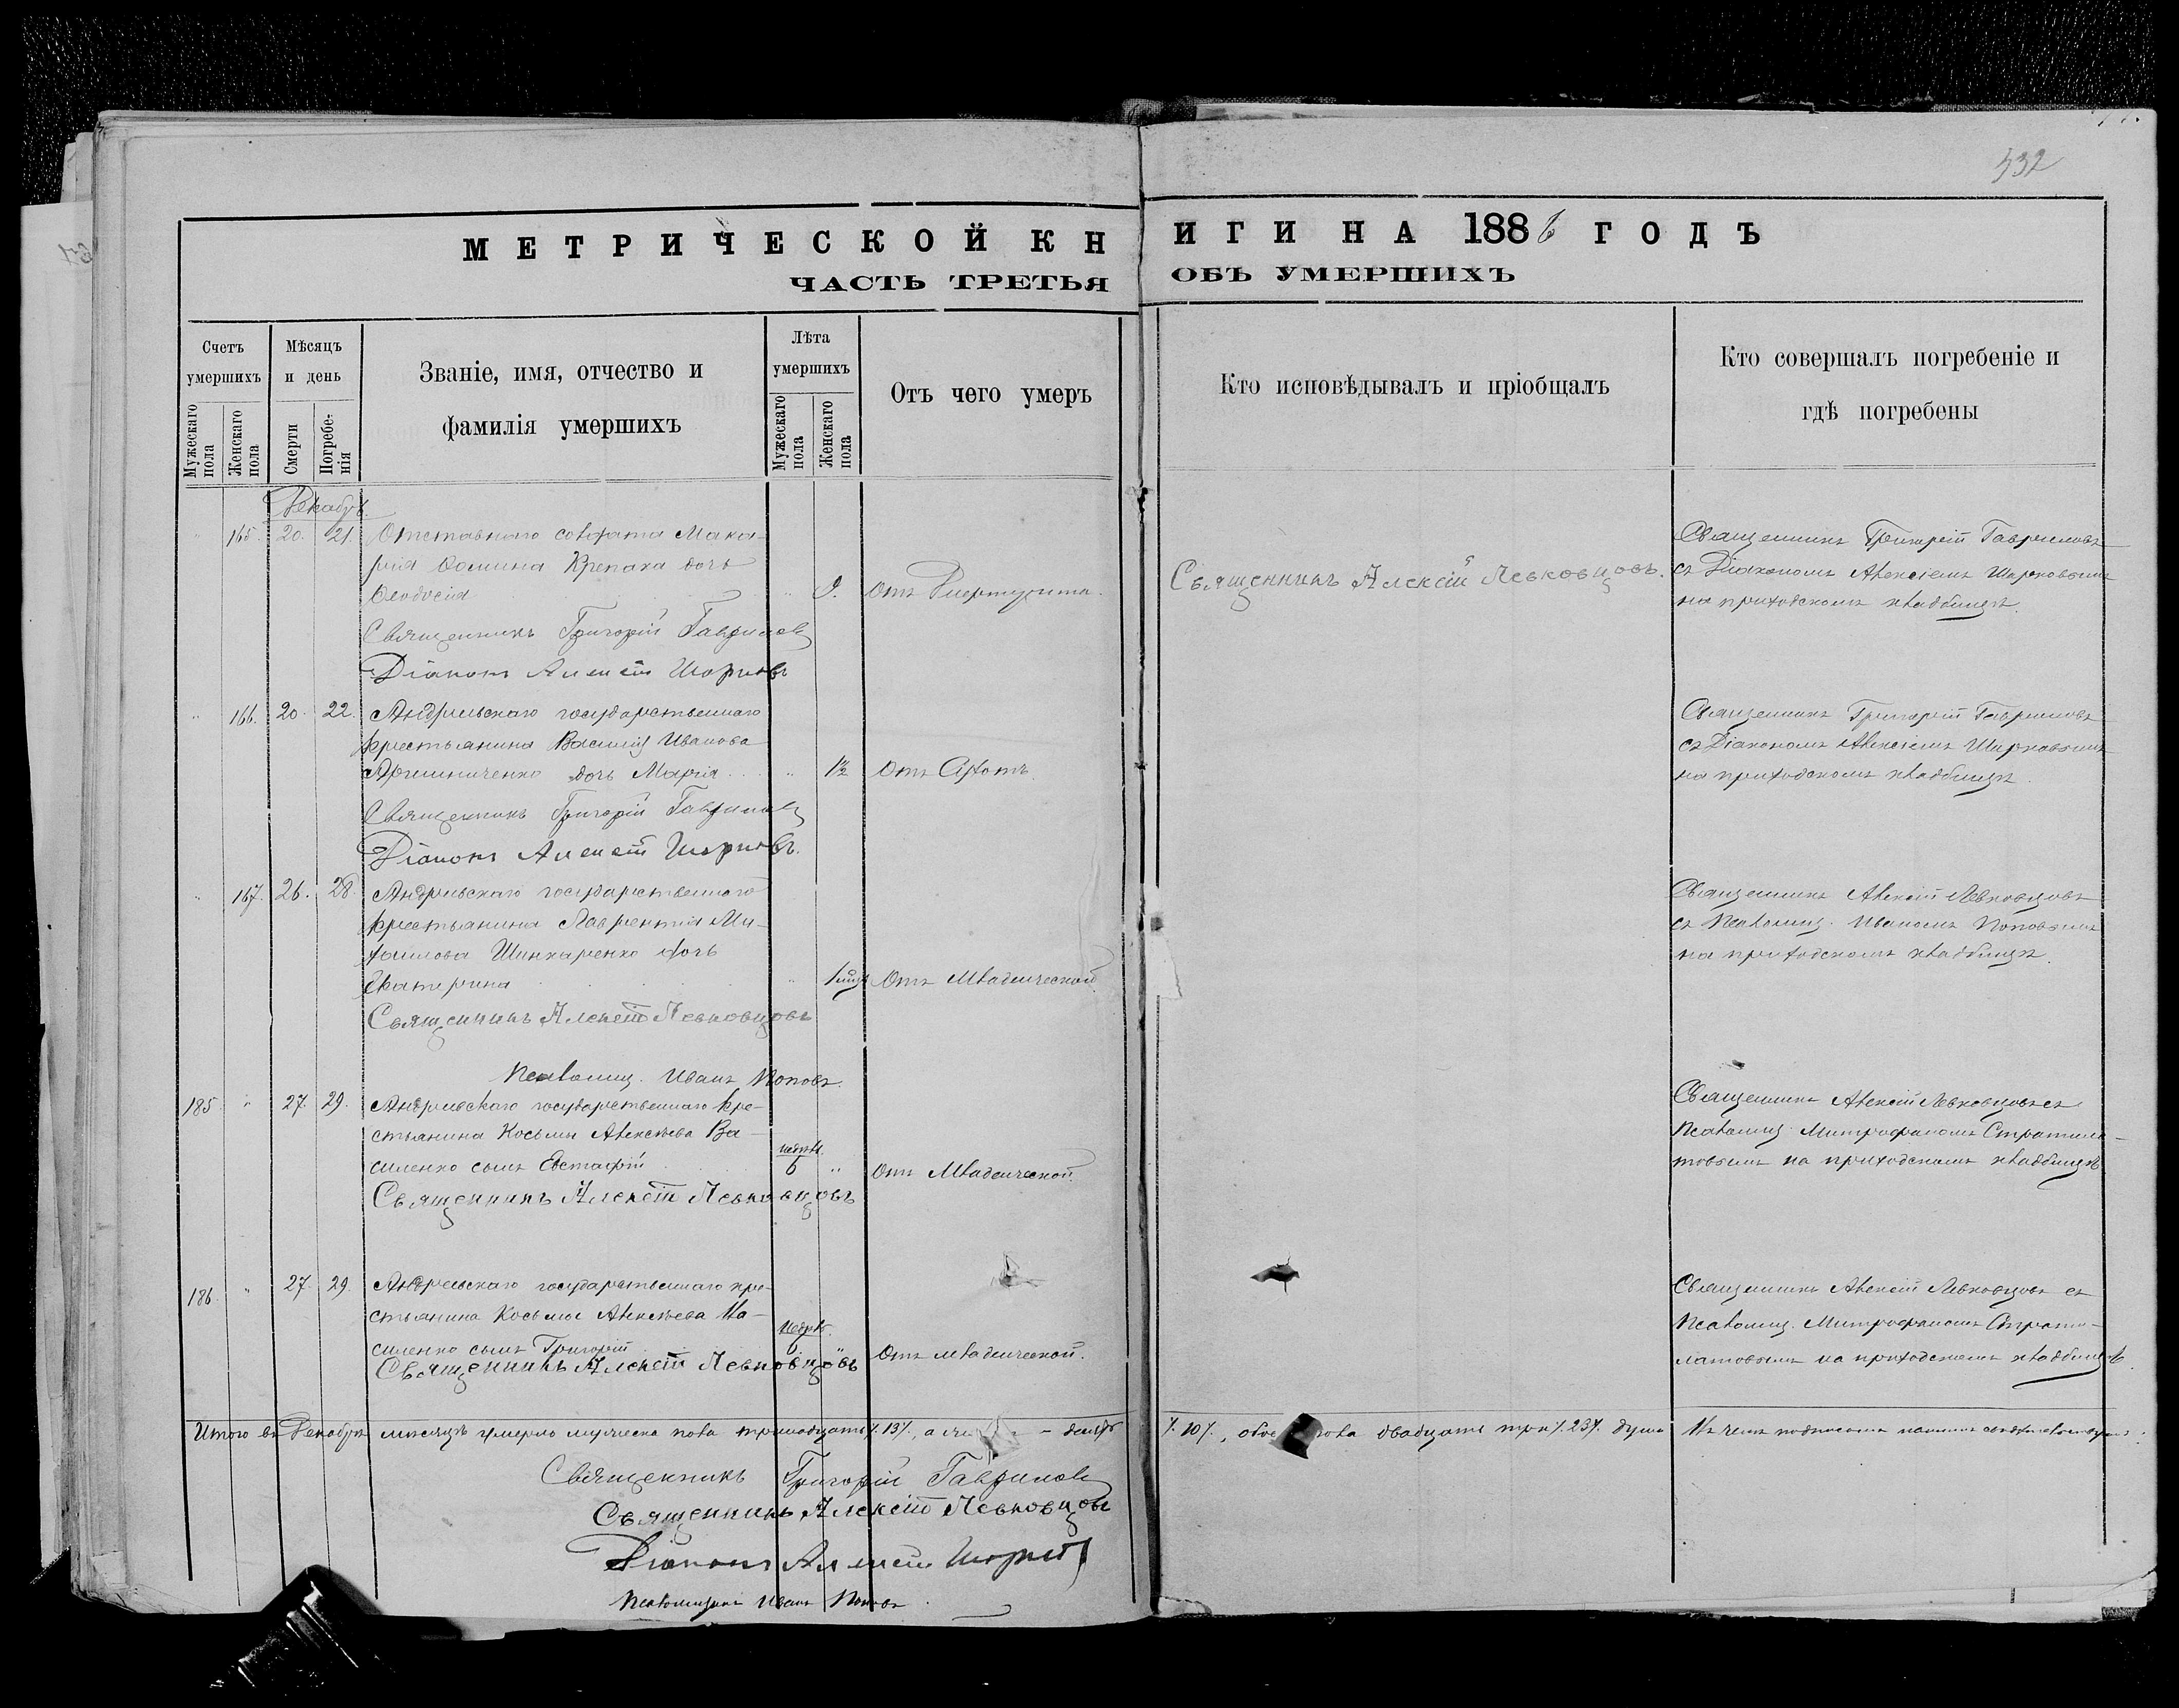 332
МЕТРИЧЕСКОЙ КНИГИ НА 1886 ГОДЪ
ЧАСТЬ ТРЕТЬЯ ОБЪ УМЕРШИХЪ
Счетъ умершихъ
Мужескаго пола
Женскаго пола
Мѣсяцъ и день
Смерти
Погребенія
Званіе, имя, отчество и
фамилія умершихъ
Лѣта умершихъ
Мужескаго пола
Женскаго пола
Отъ чего умеръ
Кто исповѣдывалъ и пріобщалъ
Кто совершалъ погребеніе и
гдѣ погребены
Декабрь
" 165. 20. 21. Отставнаго солдата Мака-
рія Ѳомина Крепака дочь
Ѳеодосія " 9. Отъ Дифтерита.
Священникъ Алексій Левковцовъ.
Священникъ Григорій Гавриловъ
съ Діакономъ Алексіемъ
на приходскомъ кладбищѣ.
Священникъ Григорій Гавриловъ
Діаконъ Алексій
" 166. 20. 22. Андреевскаго государственнаго
крестьянина Василія Иванова
дочь Марія " 1½ Отъ
Священникъ Григорій Гавриловъ
съ Діакономъ Алексіемъ
на приходскомъ кладбищѣ.
Священникъ Григорій Гавриловъ
Діаконъ Алексій
" 167. 26. 28. Андреевскаго государственнаго
крестьянина Лаврентія Ми-
хаилова Шинкаренко дочь
Екатерина " Отъ Младенческой.
Священникъ Алексій Левковцовъ
съ Псаломщ. Иваномъ Поповымъ
на приходскомъ кладбищѣ.
Священникъ Алексій Левковцовъ
Псаломщ. Иванъ Поповъ.
185. " 27. 29. Андреевскаго государственнаго кре-
стьянина Косьмы Алексѣева Ва-
силенко сынъ Евстафій недѣль 6 " Отъ Младенческой.
Священникъ Алексій Левковцовъ съ
Псаломщ. Митрофаномъ Стратила-
товымъ на приходскомъ кладбищѣ
Священникъ Алексій Левковцовъ
186. " 27. 29. Андреевскаго государственнаго кре-
стьянина Косьмы Алексѣева Ва-
силенко сынъ Григорій недѣль 6. " Отъ младенческой.
Священникъ Алексій Левковцовъ съ
Псаломщ. Митрофаномъ Страти-
латовымъ на приходскомъ кладбищѣ.
Священникъ Алексій Левковцовъ
Итого въ Декабрѣ мѣсяцѣ умерло мужеска пола тринадцать /.13/., а десять /.10/., пола двадцать три /.23/. душъ Въ чемъ подписомъ нашимъ свидѣтельствуемъ:
Священникъ Григорій Гавриловъ
Священникъ Алексій Левковцовъ
Діаконъ Алексій
Псаломщикъ Иванъ Поповъ.